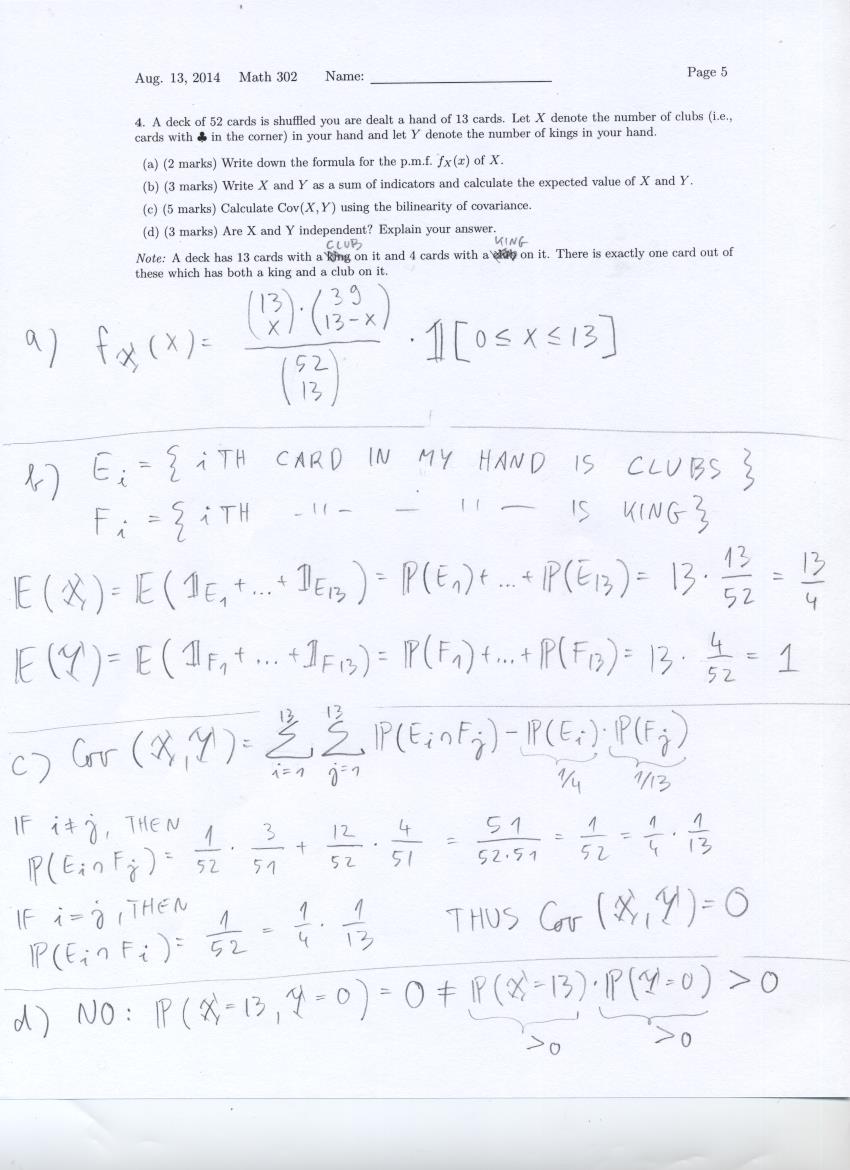 Aug. 13, 2014 Math 302 Name: ____________ Page 5
4. A deck of 52 cards is shuffled you are dealt a hand of 13 cards. Let X denote the number of clubs (i.e.,
cards with ♣ in the corner) in your hand and let Y denote the number of kings in your hand.
(a) (2 marks) Write down the formula for the p.m.f. f_X(x) of X.
(b) (3 marks) Write X and Y as a sum of indicators and calculate the expected value of X and Y.
(c) (5 marks) Calculate Cov(X, Y) using the bilinearity of covariance.
(d) (3 marks) Are X and Y independent? Explain your answer.
CLUB KING
Note: A deck has 13 cards with a king on it and 4 cards with a on it. There is exactly one card out of
these which has both a king and a club on it.
a) f_X(x) = (13 x)·(39 13-x) / (52 13) · 𝟙[0 ≤ x ≤ 13]
b) E_i = { iTH CARD IN MY HAND IS CLUBS }
F_i = { iTH -"- — " — IS KING }
E(X) = E(𝟙_E1 + ... + 𝟙_E13) = P(E_1) + ... + P(E_13) = 13 · 13/52 = 13/4
E(Y) = E(𝟙_F1 + ... + 𝟙_F13) = P(F_1) + ... + P(F_13) = 13 · 4/52 = 1
c) Cov(X,Y) = 13 Σ i=1 13 Σ j=1 P(E_i ∩ F_j) - P(E_i)·P(F_j)
1/4 1/13
IF i≠j, THEN
P(E_i ∩ F_j) = 1/52 · 3/51 + 12/52 · 4/51 = 51/52·51 = 1/52 = 1/4 · 1/13
IF i=j, THEN
P(E_i ∩ F_i) = 1/52 = 1/4 · 1/13 THUS Cov(X,Y) = 0
d) NO: P(X=13, Y=0) = 0 ≠ P(X=13)·P(Y=0) > 0
>0 >0